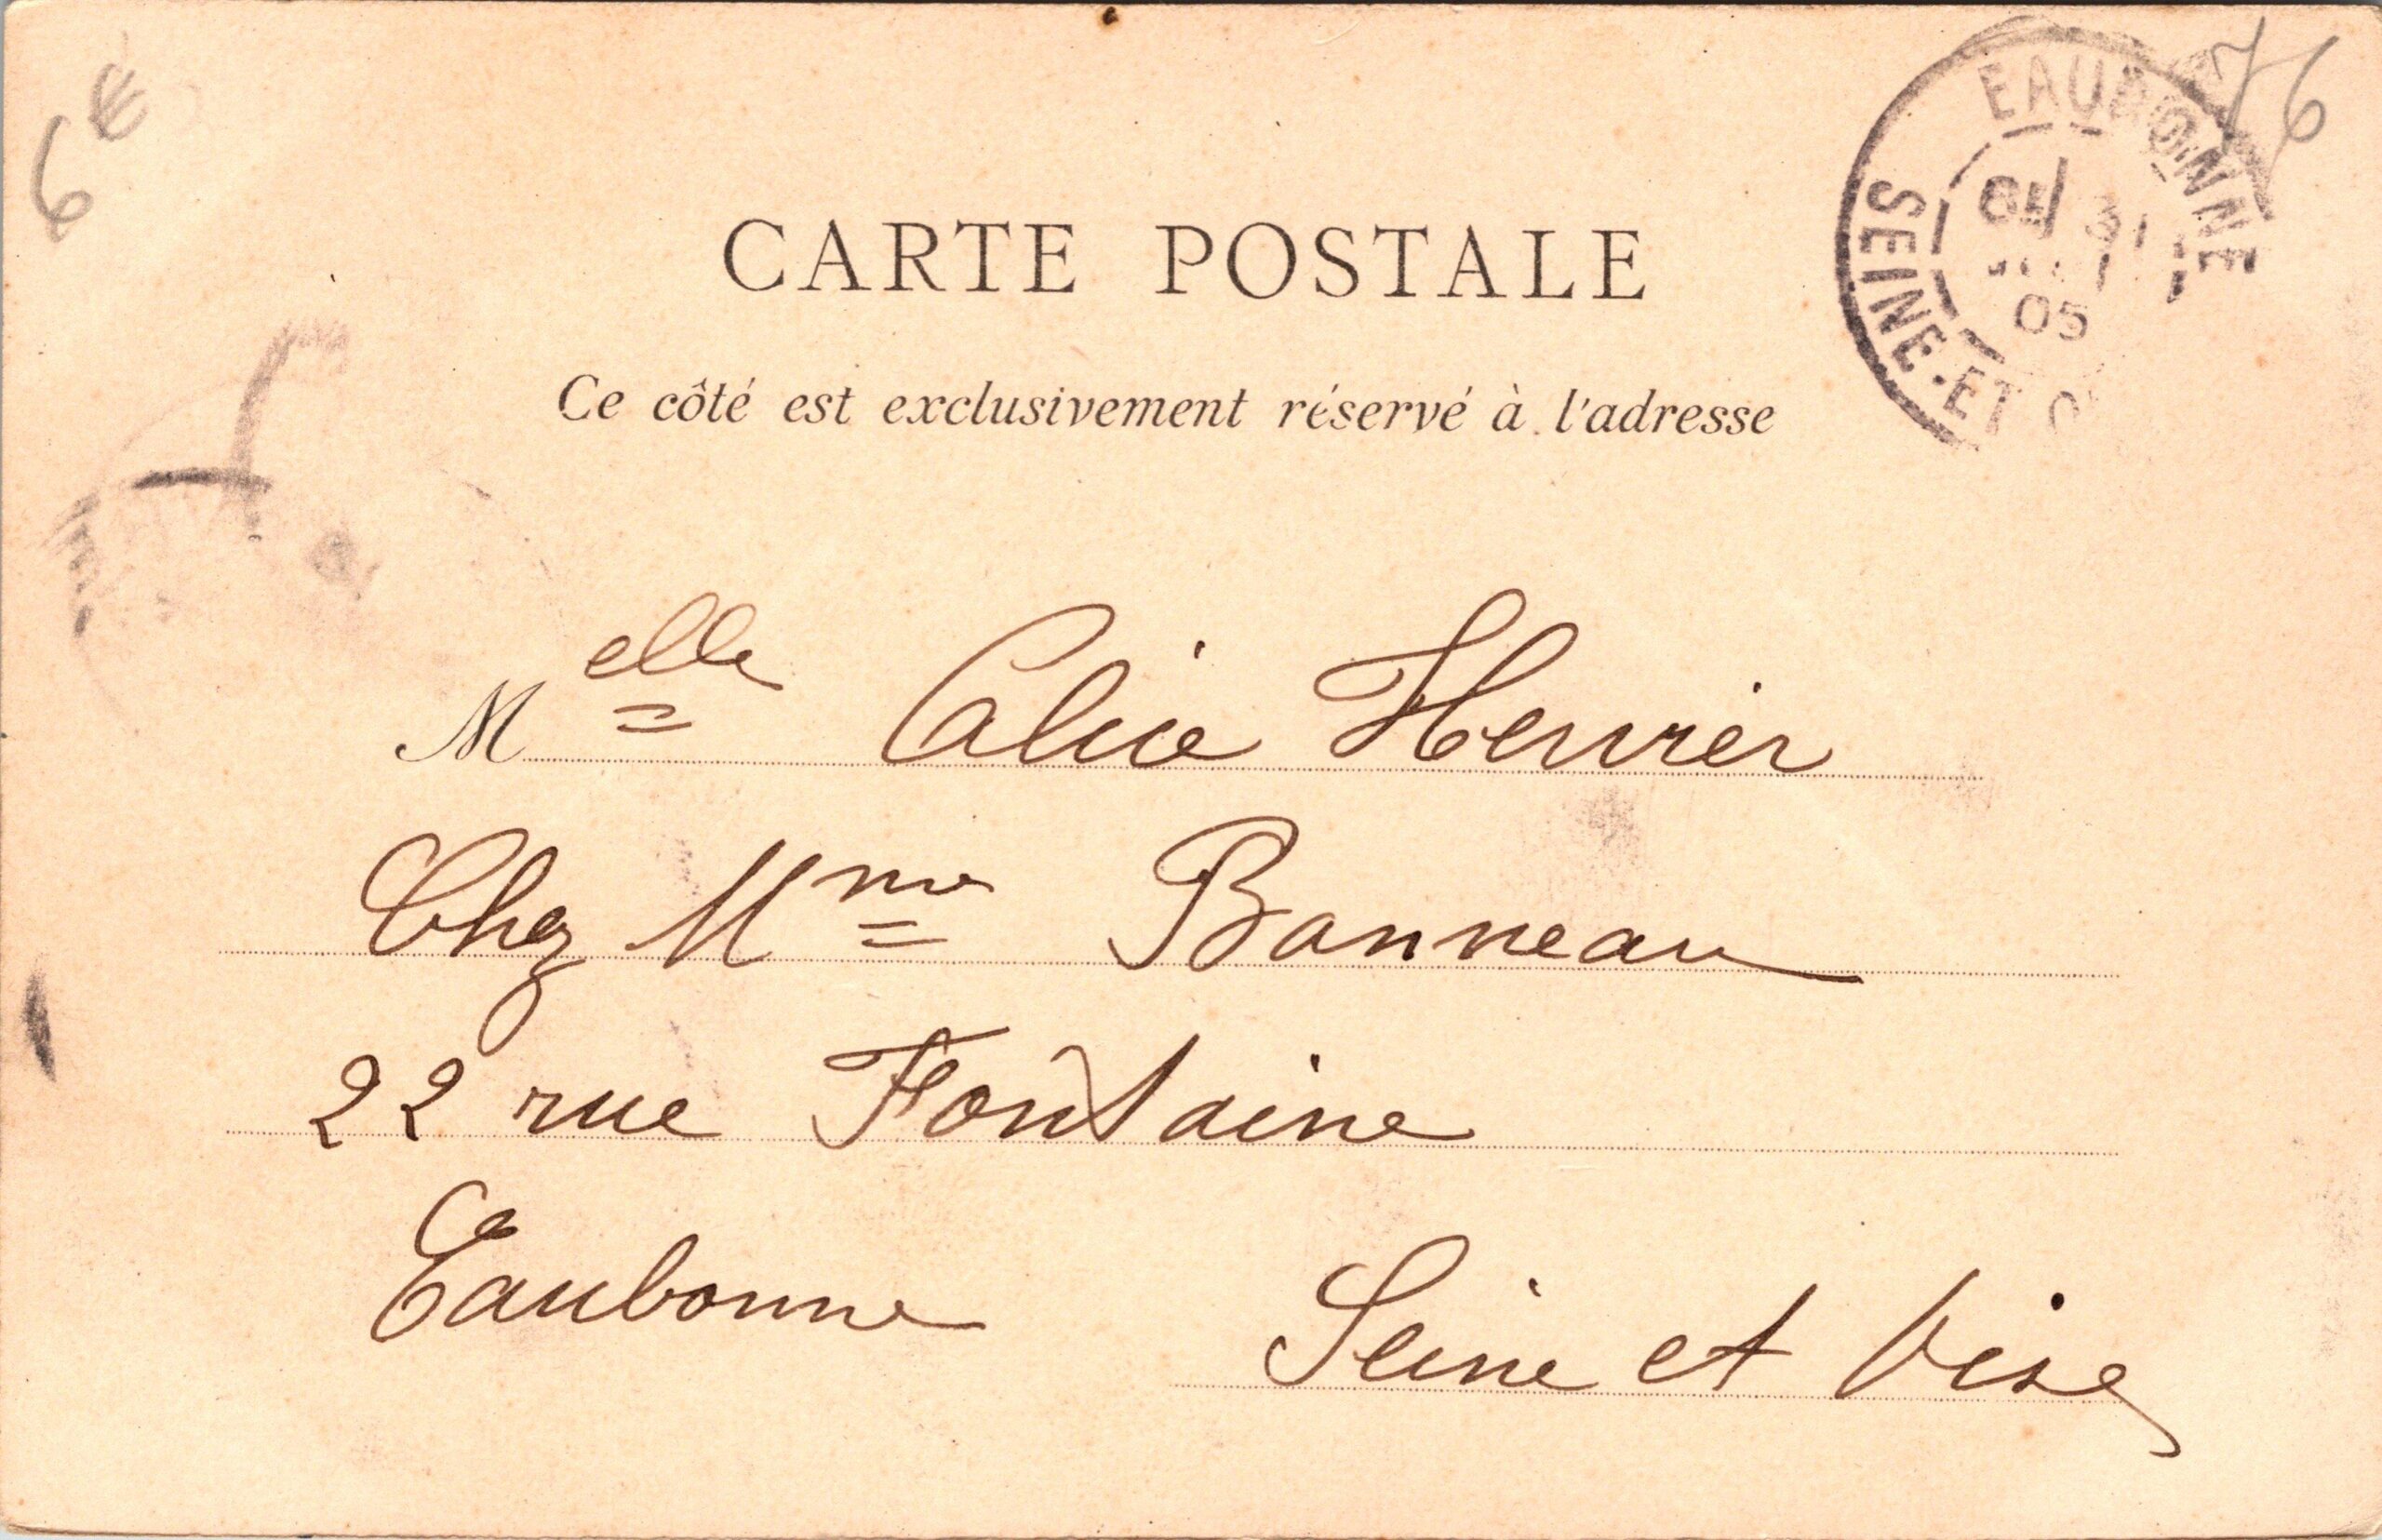 6€
76
EAUBONNE
05
SEINE-ET-O
CARTE POSTALE
Ce côté est exclusivement réservé à l'adresse
Melle Alice Henrier
Chez Mme Bonneau
22 rue Fontaine
Eaubonne Seine et Oise